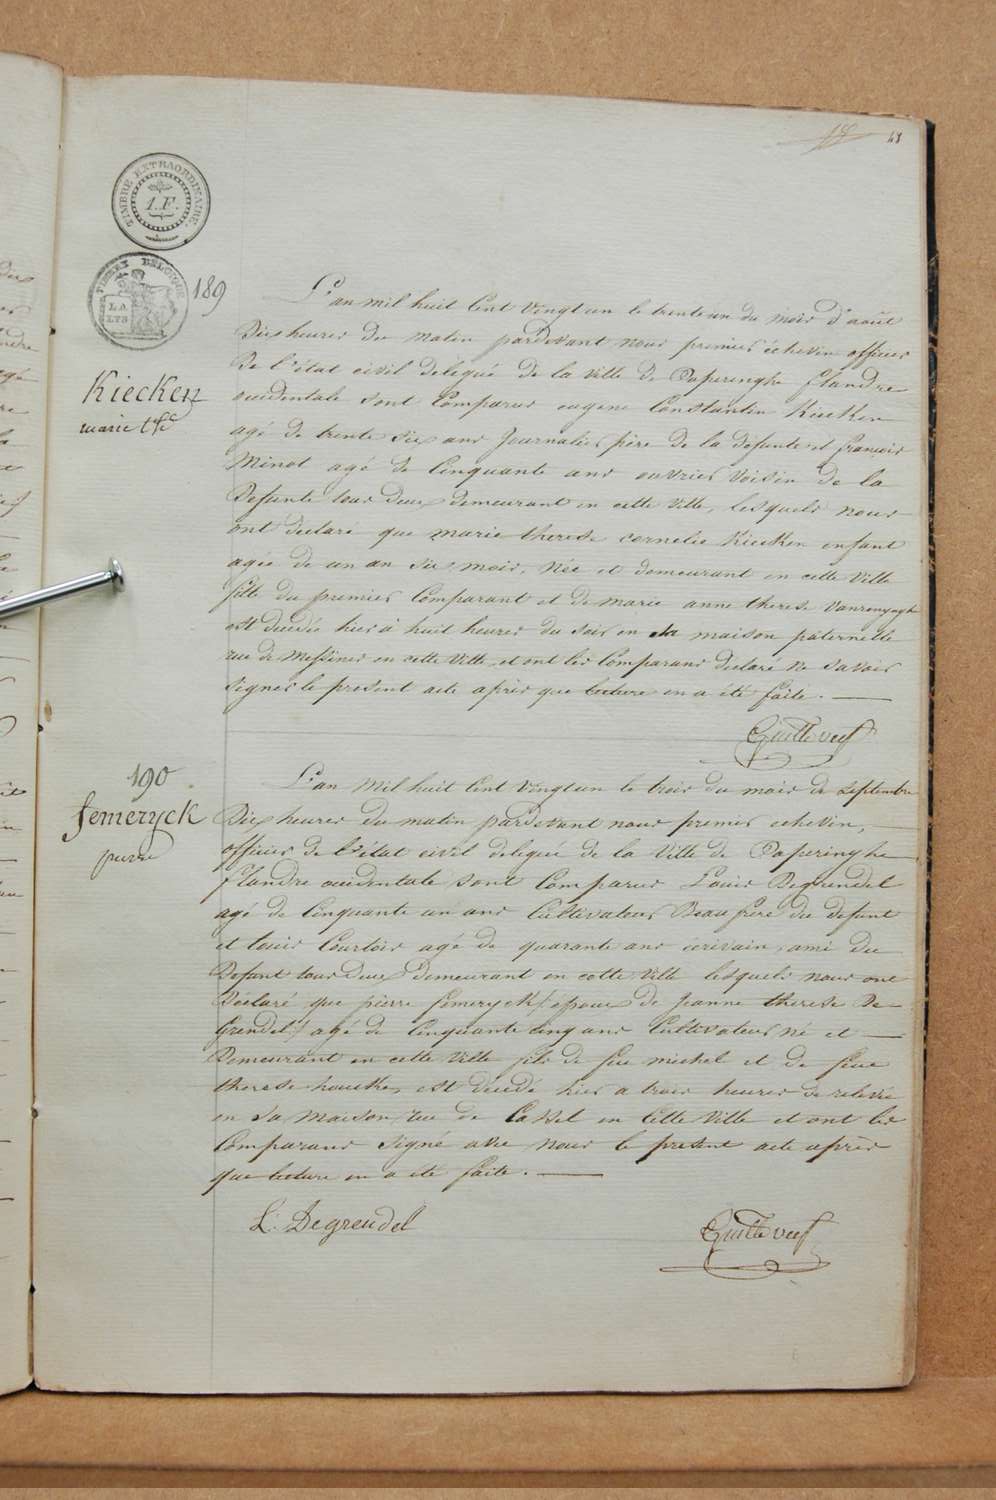 48
TIMBRE EXTRAORDINAIRE
1.F.
BELGIQUE
189
Kiecken
marie thse
L'an mil huit Cent vingt un le trente un du mois d'août
Dix heures du matin pardevant nous premier échevin officier
De l'état civil delégué de la ville de Poperinghe flandre
occidentale sont Comparus eugene Constantin Kiecken
agé de trente six ans Journalier père de la defunte et françois
Minot agé de Cinquante ans ouvrier voisin de la
Defunte tous deux demeurant en cette ville, lesquels nous
ont declaré que marie therese cornelie Kiecken enfant
agée de un an six mois, née et demeurant en cette ville
fille du premier Comparant et de marie anne therese
est decedée hier à huit heures du soir en sa maison paternelle
rue de Messines en cette ville, et ont les Comparans declaré ne savoir
signer le present acte après que lecture en a été faite.
190
femeryck
pierre
L'an mil huit Cent vingt un le trois du mois de septembre
Dix heures du matin pardevant nous premier echevin,
officier de l'état civil delegué de la ville de Poperinghe
flandre occidentale sont Comparus Louis Degrendel
agé de Cinquante un ans Cultivateur Beau frere du defunt
et louis Courtois agé de quarante ans ecrivain, ami du
Defunt tous deux demeurant en cette ville lesquels nous ont
Déclaré que pierre femeryck (époux de Jeanne therese De
Grendel) agé de Cinquante cinq ans Cultivateur né et
Demeurant en cette ville fils de feu michel et de feue
therese houcke, est decedé hier a trois heures de relevée
en sa maison rue de Cassel en Cette ville et ont les
Comparans signé avec nous le present acte après
que lecture en a été faite.
L. Degrendel